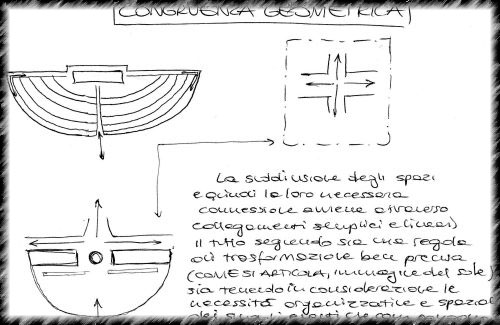 CONGRUENZA GEOMETRICA
La suddivisione degli spazi
e quindi la loro necessaria
connessione avviene attraverso
collegamenti semplici e lineari
Il tutto seguendo sia una regola
di trasformazione ben precisa
(COME SI ARTICOLA, immagine del sole)
sia tenendo in considerazione le
necessità organizzative e spaziali